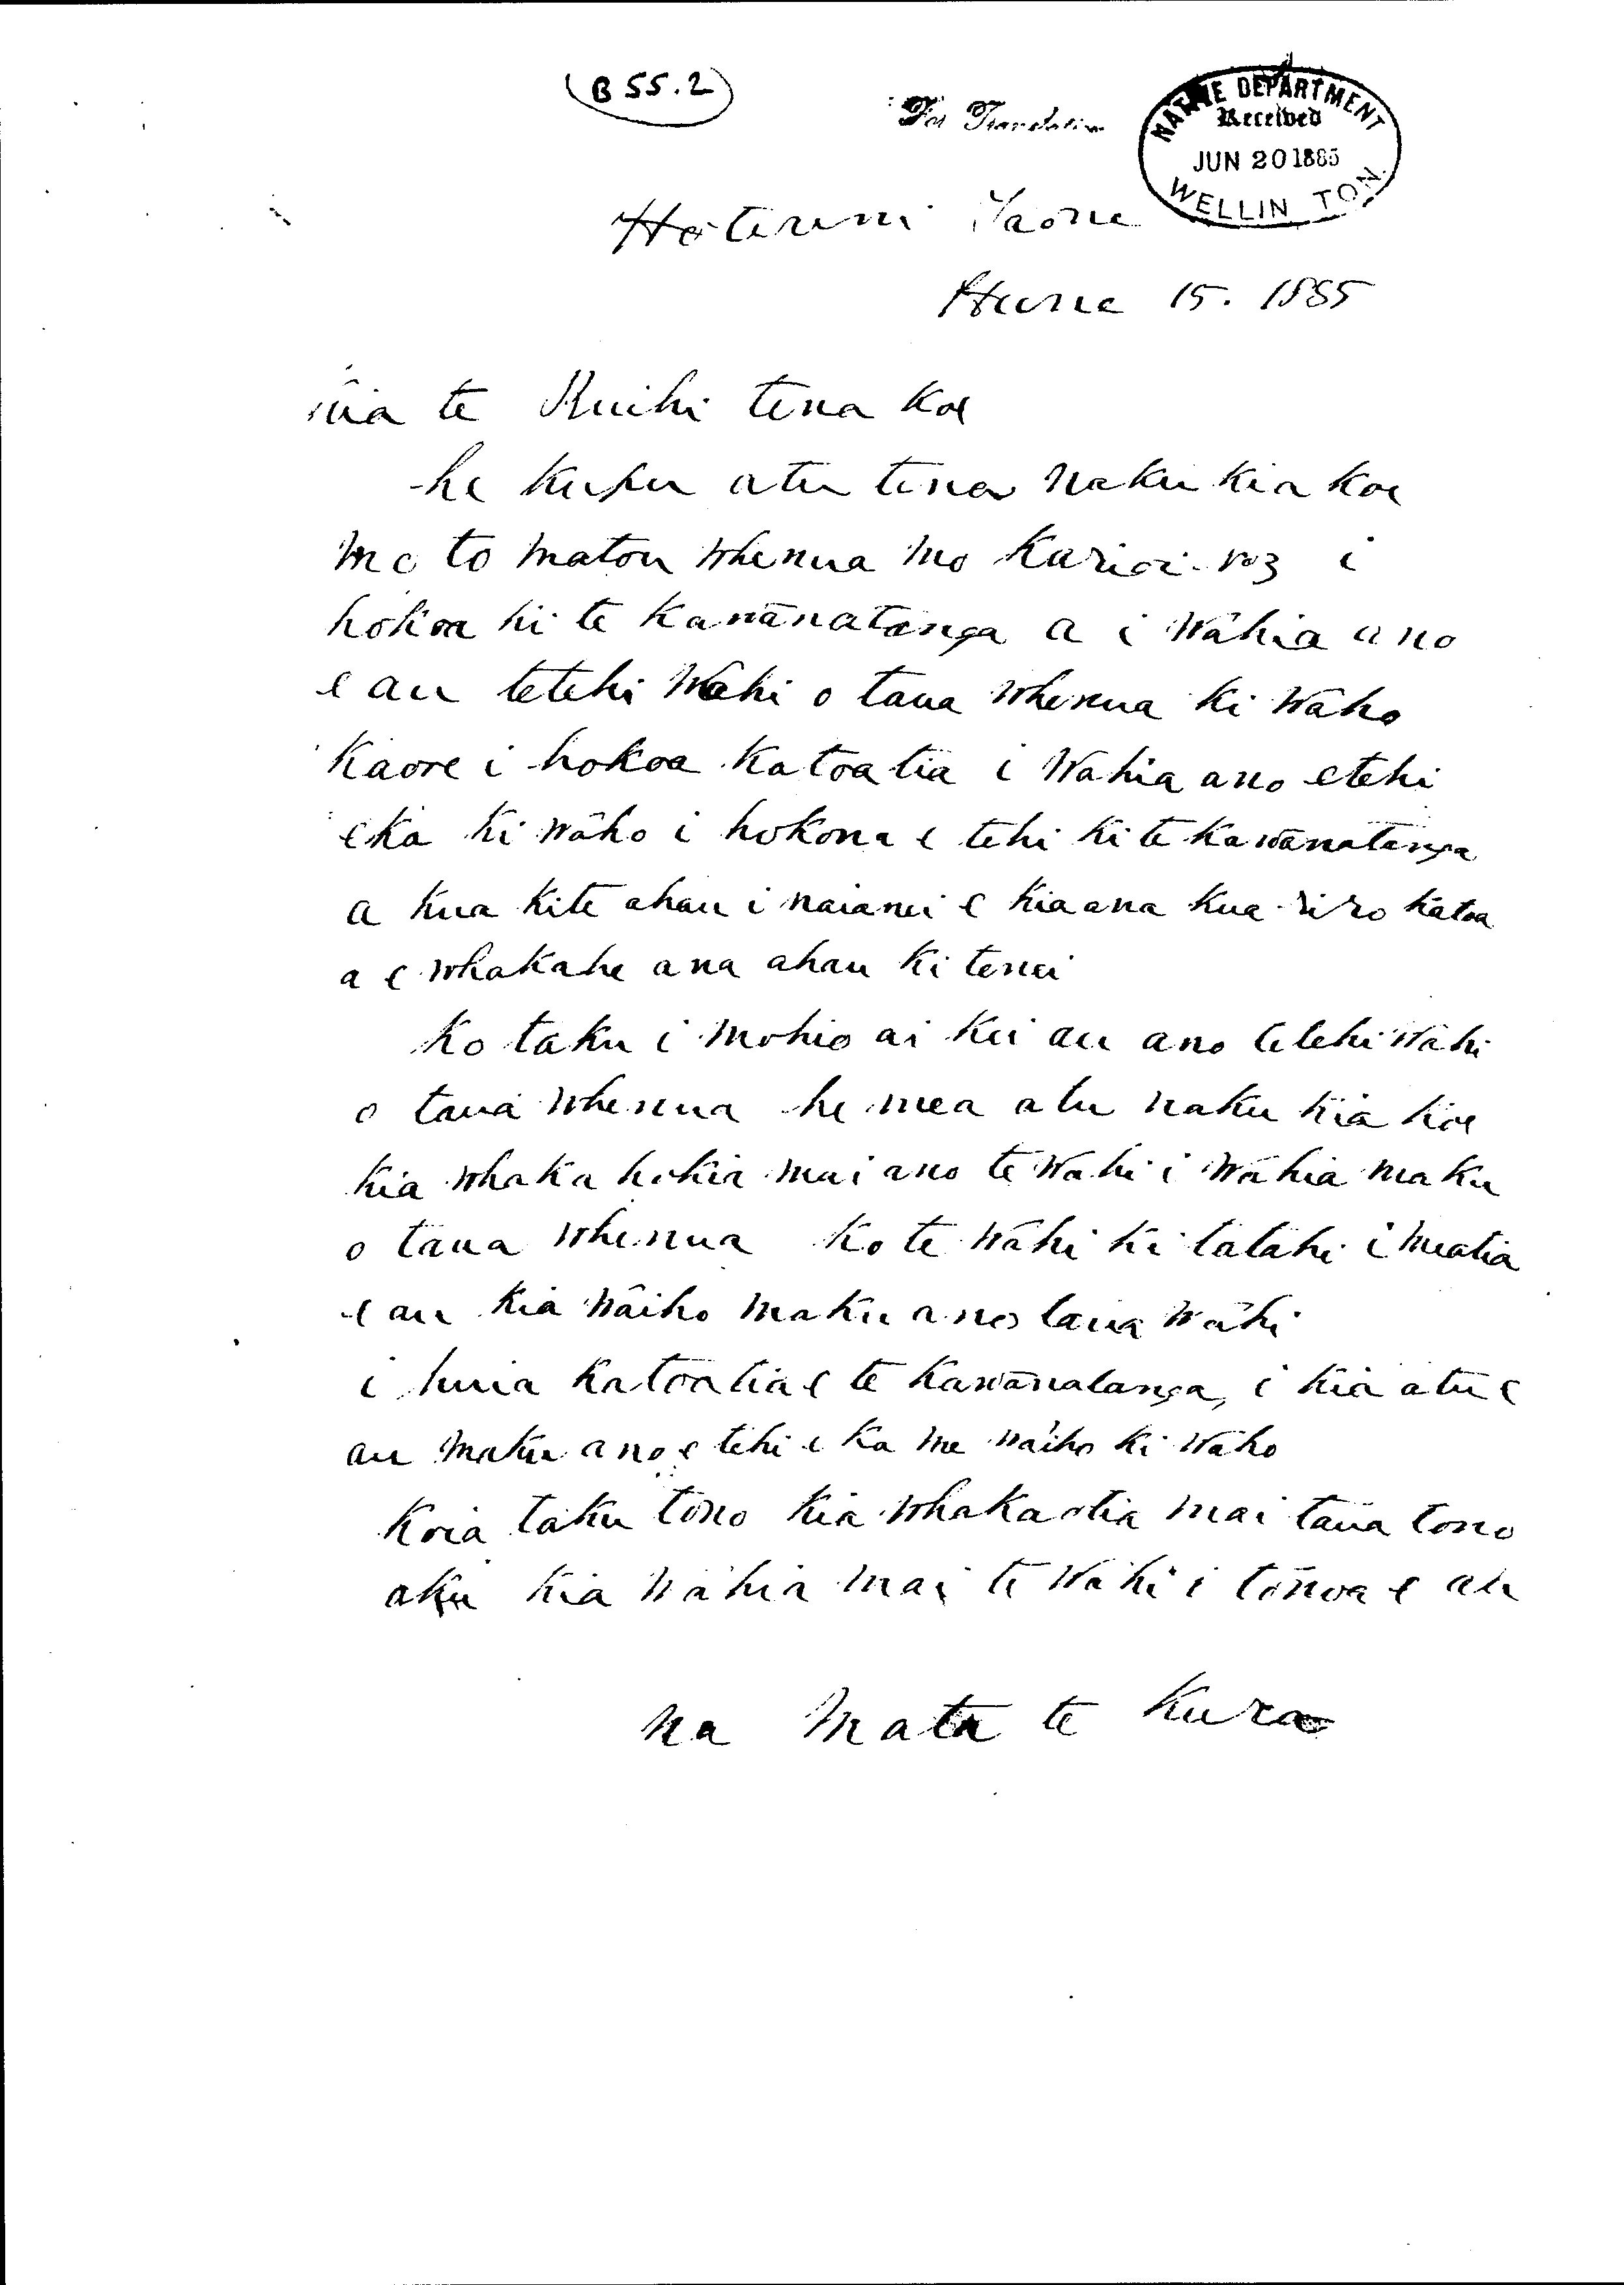 B 55.2
For Translation
NATIVE DEPARTMENT
Received
JUN 20 1885
WELLIN TON
Hoterini Taone
Hune 15. 1885
Kia te Ruihi tena koe
he kupu atu tena naku kia koe
mo to matou whenua mo Karioi i
hokoa ki te Kawānatanga a i wāhia ano
e au tetehi wahi o taua whenua ki wāho
Kaore i hokoa katoatia i wahia ano etehi
eka ki wāho i hokona e tehi ki te Kawānatanga
a kua kite ahau i naianei e kiaana kua riro katoa
a e whakahe ana ahau ki tenei
Ko taku i mohio ai kei au ano tetehi wāhi
o taua whenua he mea atu naku kia koe
kia whaka hokia mai ano te wahi i wāhia maku
o taua whenua ko te wāhi ki tatahi i meatia
e au kia waiho maku ano taua wāhi
i huia katoatia e te Kawānatanga, i kia atu e
au maku ano e tehi e ka me waiho ki wāho
Koia taku tono kia whakaotia mai taua tono
aku kia wāhia mai te wāhi i tonoa e au
na Mata te Kura